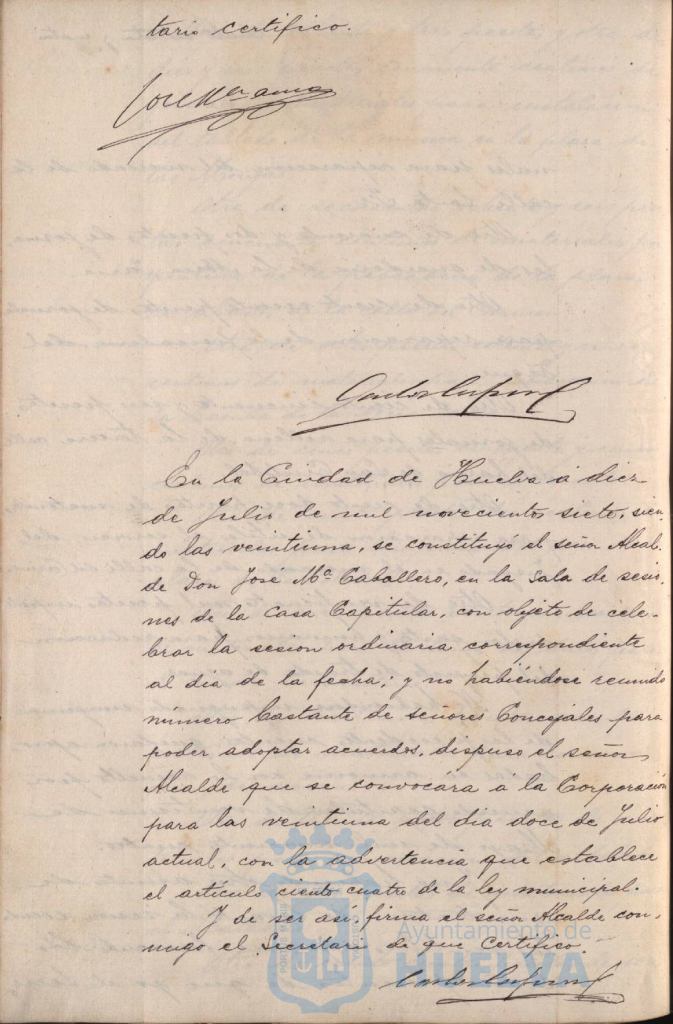 tario certifico.
En la Ciudad de Huelva á diez
de Julio de mil novecientos siete, sien-
do las veintiuna, se constituyó el señor Alcal-
de Don José Mª Caballero, en la Sala de sesio-
nes de la Casa Capitular, con objeto de cele-
brar la sesion ordinaria correspondiente
al dia de la fecha; y no habiéndose reunido
número bastante de señores Concejales para
poder adoptar acuerdos, dispuso el señor
Alcalde que se convocára á la Corporación
para las veintiuna del dia doce de Julio
actual, con la advertencia que establece
el artículo ciento cuatro de la ley municipal.
Y de ser así, firma el señor Alcalde con-
migo el Secretario de que certifico.
Ayuntamiento de
HUELVA